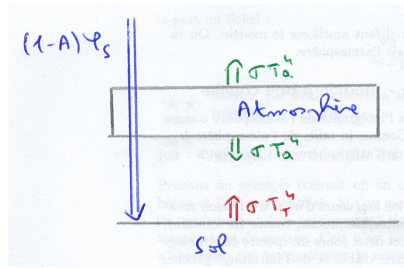 (1-A) φs
⇑ σ Ta⁴
Atmosphère
⇓ σ Ta⁴
⇑ σ TT⁴
Sol